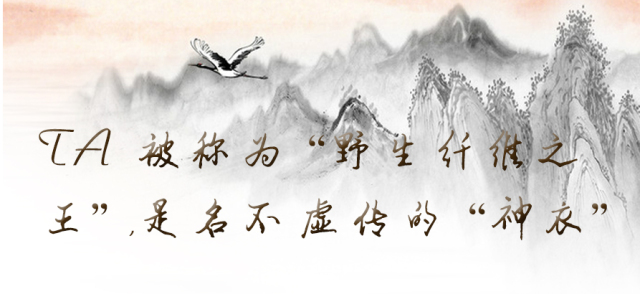 TA 被称为“野生纤维之
王”,是名不虚传的“神衣”